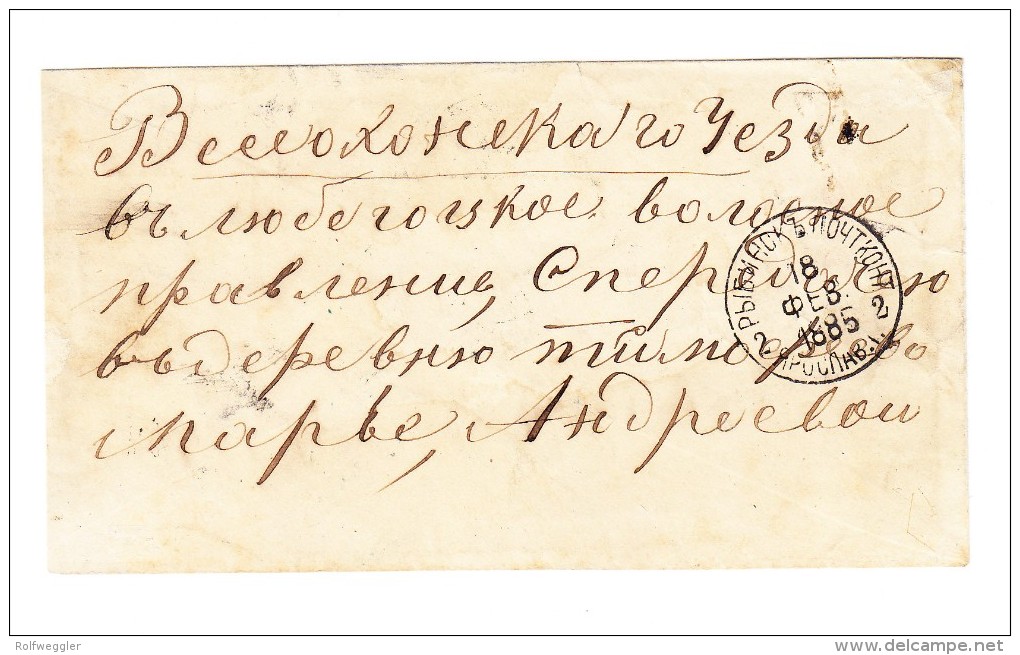 Весьохонскаго Уезда
въ любегоцкое волосное
правление, Спередачею
въ деревню тимофеево
марье, Андреевои
РЫБИНСКЪ ПОЧТ. КОНТ.
18
ФЕВ.
1885
2 2
ЯРОСЛАВ.
Rolfweggler
delcampe.net